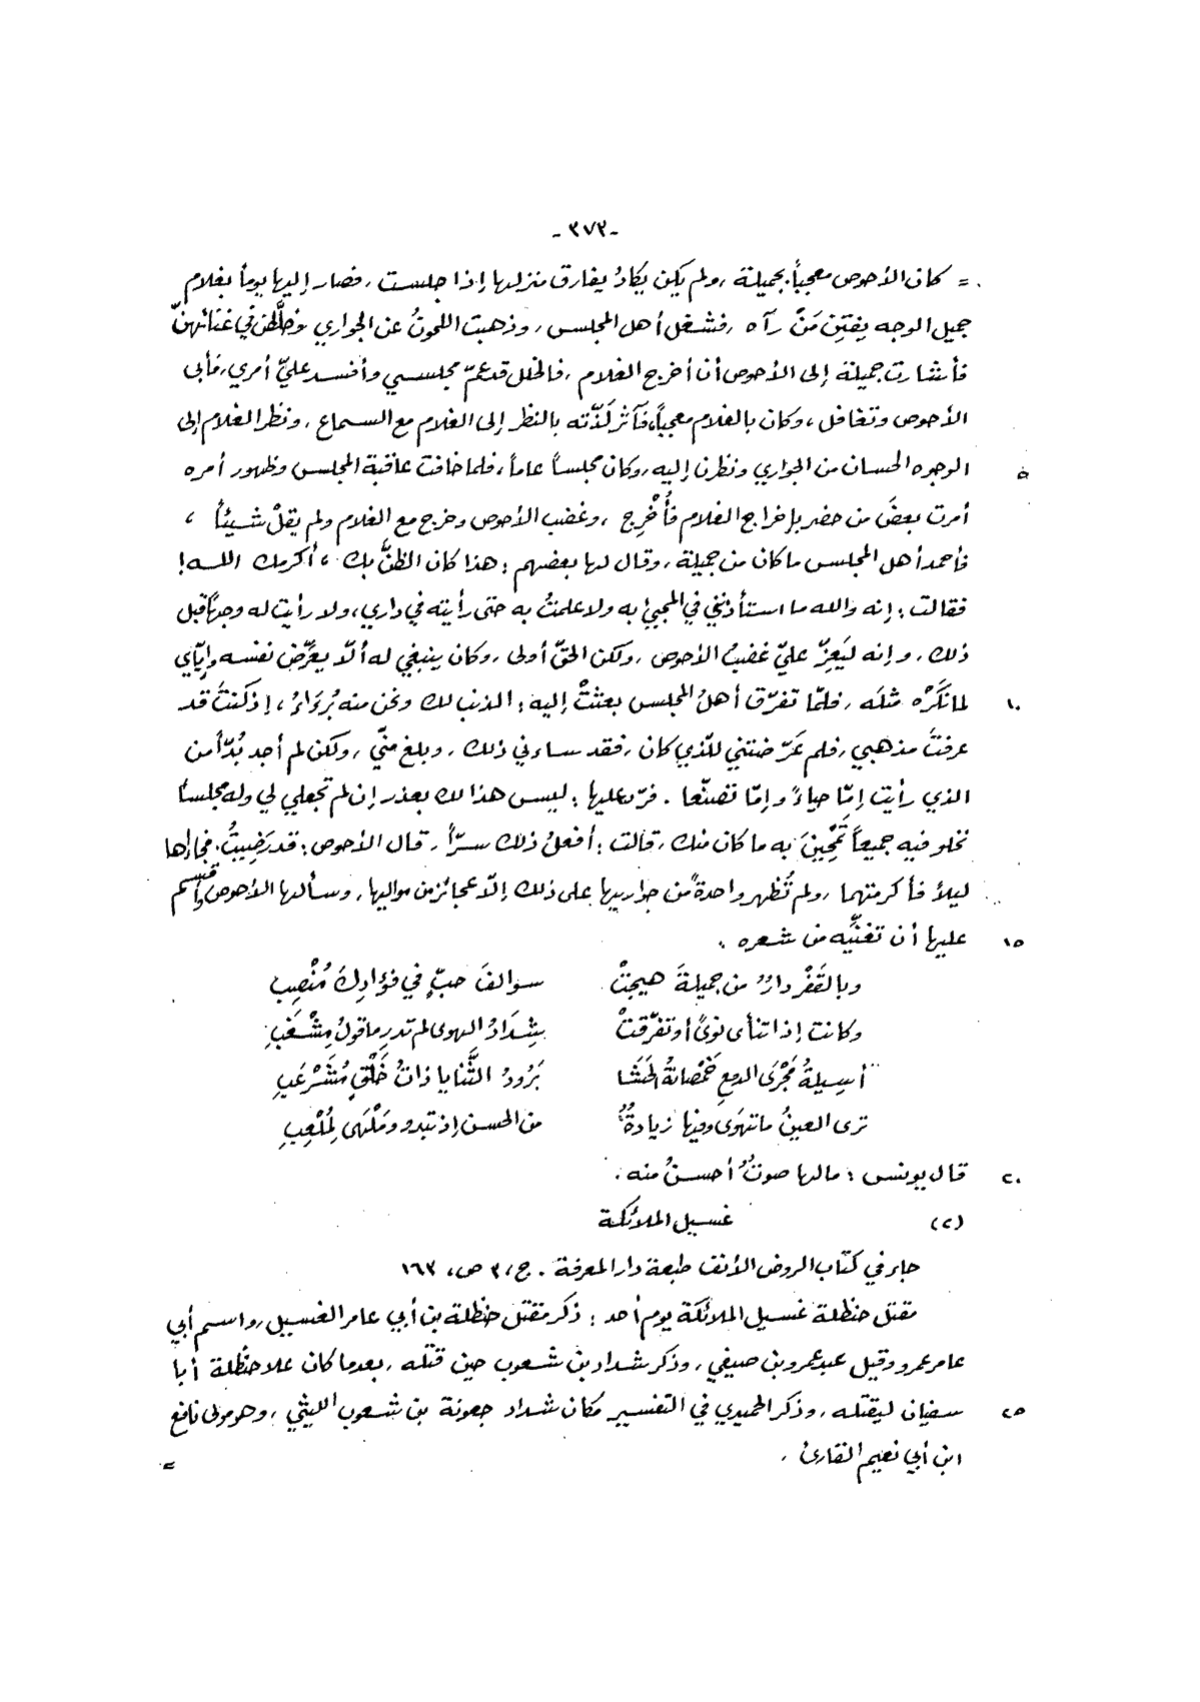 -٣٧٣-
= كان الأحوص معجباً بجميلة، ولم يكن يكادُ يفارق منزلها إذا جلست، فصار إليها يوماً بغلام
جميل الوجه يفتِن مَنْ رآه، فشغل أهل المجلس، وذهبت اللحونُ عن الجواري وخلَّطن في غنائهنّ
فأشارت جميلة إلى الأحوص أن أخرج الغلام، فالخلل قد عمّ مجلسي وأفسد عليّ أمري، فأبى
الأحوص وتغافل، وكان بالغلام معجباً، فآثر لذّته بالنظر إلى الغلام مع السماع، ونظر الغلام إلى
٥ الوجوه الحسان من الجواري ونظرن إليه، وكان مجلساً عاماً، فلما خافت عاقبة المجلس وظهور أمره
أمرت بعضَ من حضر بإخراج الغلام فأُخْرِج، وغضب الأحوص وخرج مع الغلام ولم يقلْ شيئاً،
فأحمد أهل المجلس ما كان من جميلة، وقال لها بعضهم: هذا كان الظنُّ بك، أكرمك الله!
فقالت: إنه والله ما استأذنني في المجيئ به ولا علمتُ به حتى رأيته في داري، ولا رأيت له وجهاً قبل
ذلك، وإنه ليَعِزّ عليّ غضبُ الأحوص، ولكن الحقّ أولى، وكان ينبغي له ألّا يعرِّض نفسه وإيّاي
١٠ لما نَكْرَه مثلَه، فلمّا تفرّق أهلُ المجلس بعثتْ إليه: الذنب لك ونحن منه بُرَآءُ، إذ كنتَ قد
عرفتَ مذهبي، فلم عَرّضتني للّذي كان، فقد ساءني ذلك، وبلغ منّي، ولكن لم أجد بُدّاً من
الذي رأيت إمّا حياءً وإمّا تصنّعا. فردّ عليها: ليس هذا لك بعذر إن لم تجعلي لي وله مجلساً
نخلو فيه جميعاً تَمْحِينَ به ما كان منك، قالت: أفعلُ ذلك سرّاً، قال الأحوص: قد رَضِيتُ. فجاءاها
ليلاً فأكرمتهما، ولم تُظهر واحدةً من جواريها على ذلك إلّا عجائز من مواليها، وسألها الأحوص وأقسم
١٥ عليها أن تغنِّيه من شعره:
وبالقَفْر دارٌ من جميلةَ هيجتْ سوالفَ حبٍّ في فؤادِكَ مُنْصِبِ
وكانت إذا تنأى نوىً أو تفرّقتْ شِدَادُ الهوى لم تدر ما قولُ مِشْغَبِ
أسِيلةُ مَجْرَى الدمعِ خُمْصانةُ الحَشَا بَرُودُ الثَّنايا ذاتُ خَلْقٍ مُشَرْعَبِ
ترى العينُ ما تهوَى وفيها زيادةٌ من الحسن إذ تبدو ومَلْهَى لمُلْعِبِ
٢٠ قال يونس: ما لها صوتٌ أحسنُ منه.
(٢) غسيل الملائكة
جاء في كتاب الروض الأنف طبعة دار المعرفة. ج، ٣ ص، ١٦٣
مقتل حنظلة غسيل الملائكة يوم أحد: ذكر مقتل حنظلة بن أبي عامر الغسيل، واسم أبي
عامر عمرو وقيل عبد عمرو بن صيفي، وذكر شداد بن شعوب حين قتله، بعدما كان علا حنظلة أبا
٢٥ سفيان ليقتله، وذكر الحميدي في التفسير مكان شداد جعونة بن شعوب الليثي، وهو مولى نافع
ابن أبي نعيم القارئ. =